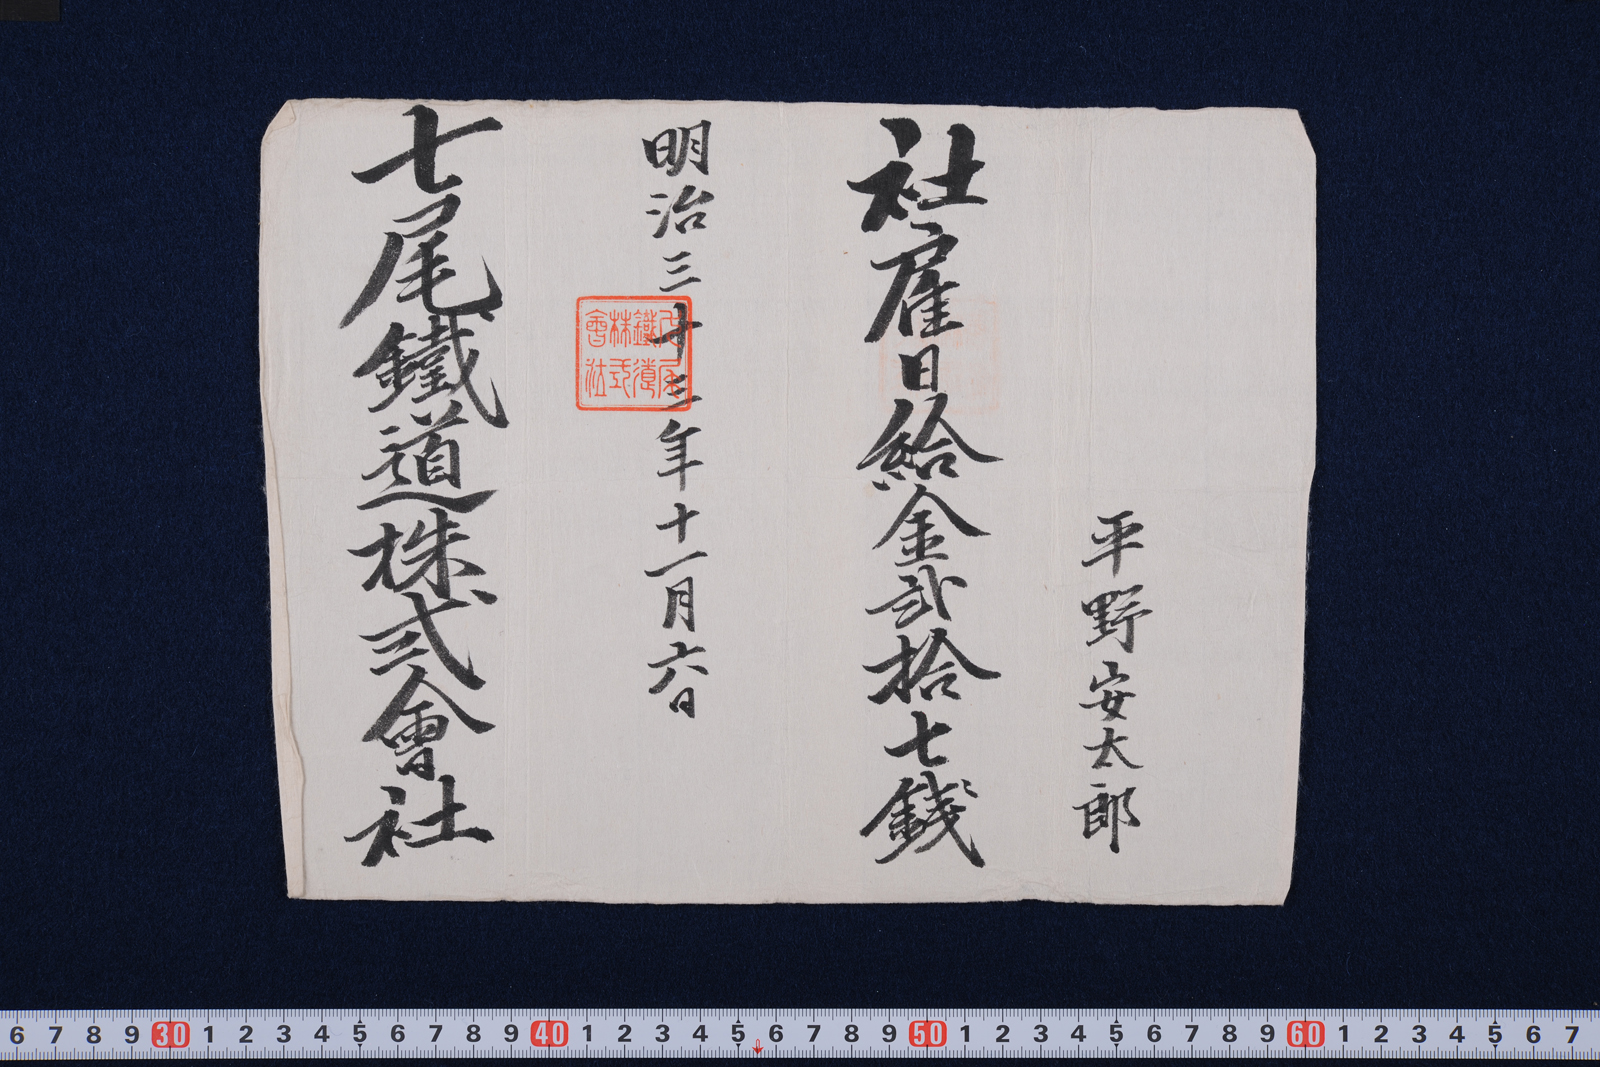 平野安太郎
社雇日給金弐拾七錢
明治三十三年十一月六日
七尾鐵道株式會社
七尾鐵道株式會社
6 7 8 9 30 1 2 3 4 5 6 7 8 9 40 1 2 3 4 5 6 7 8 9 50 1 2 3 4 5 6 7 8 9 60 1 2 3 4 5 6 7